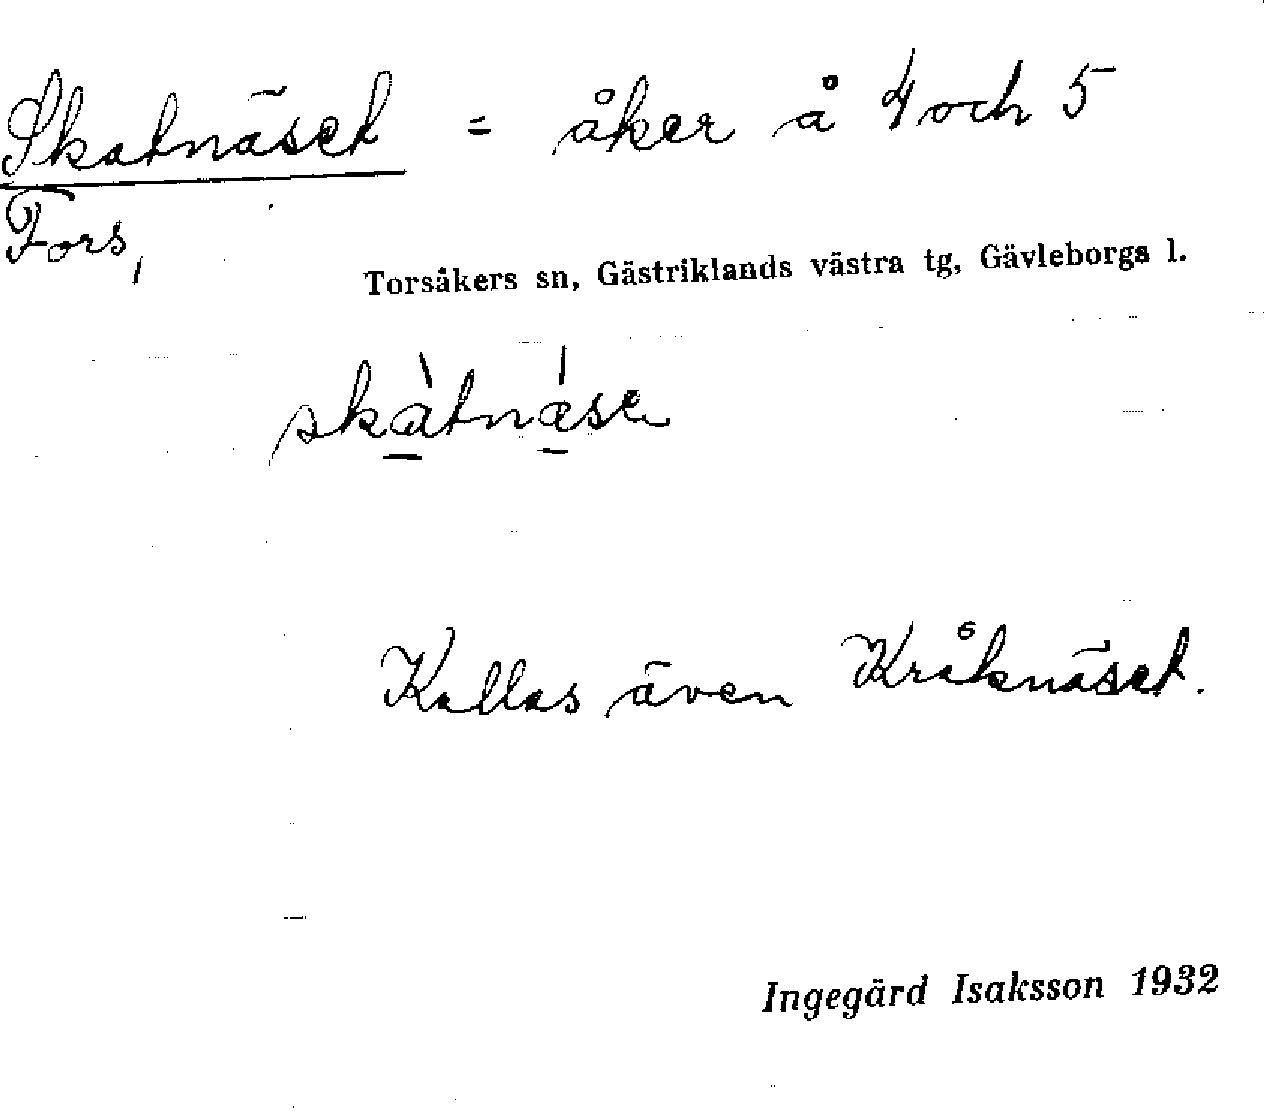 Skatnäset = åker å 4 och 5
Fors,
Torsåkers sn, Gästriklands västra tg, Gävleborgs l.
skàtnæ´se
Kallas även Kråknäset.
Ingegärd Isaksson 1932